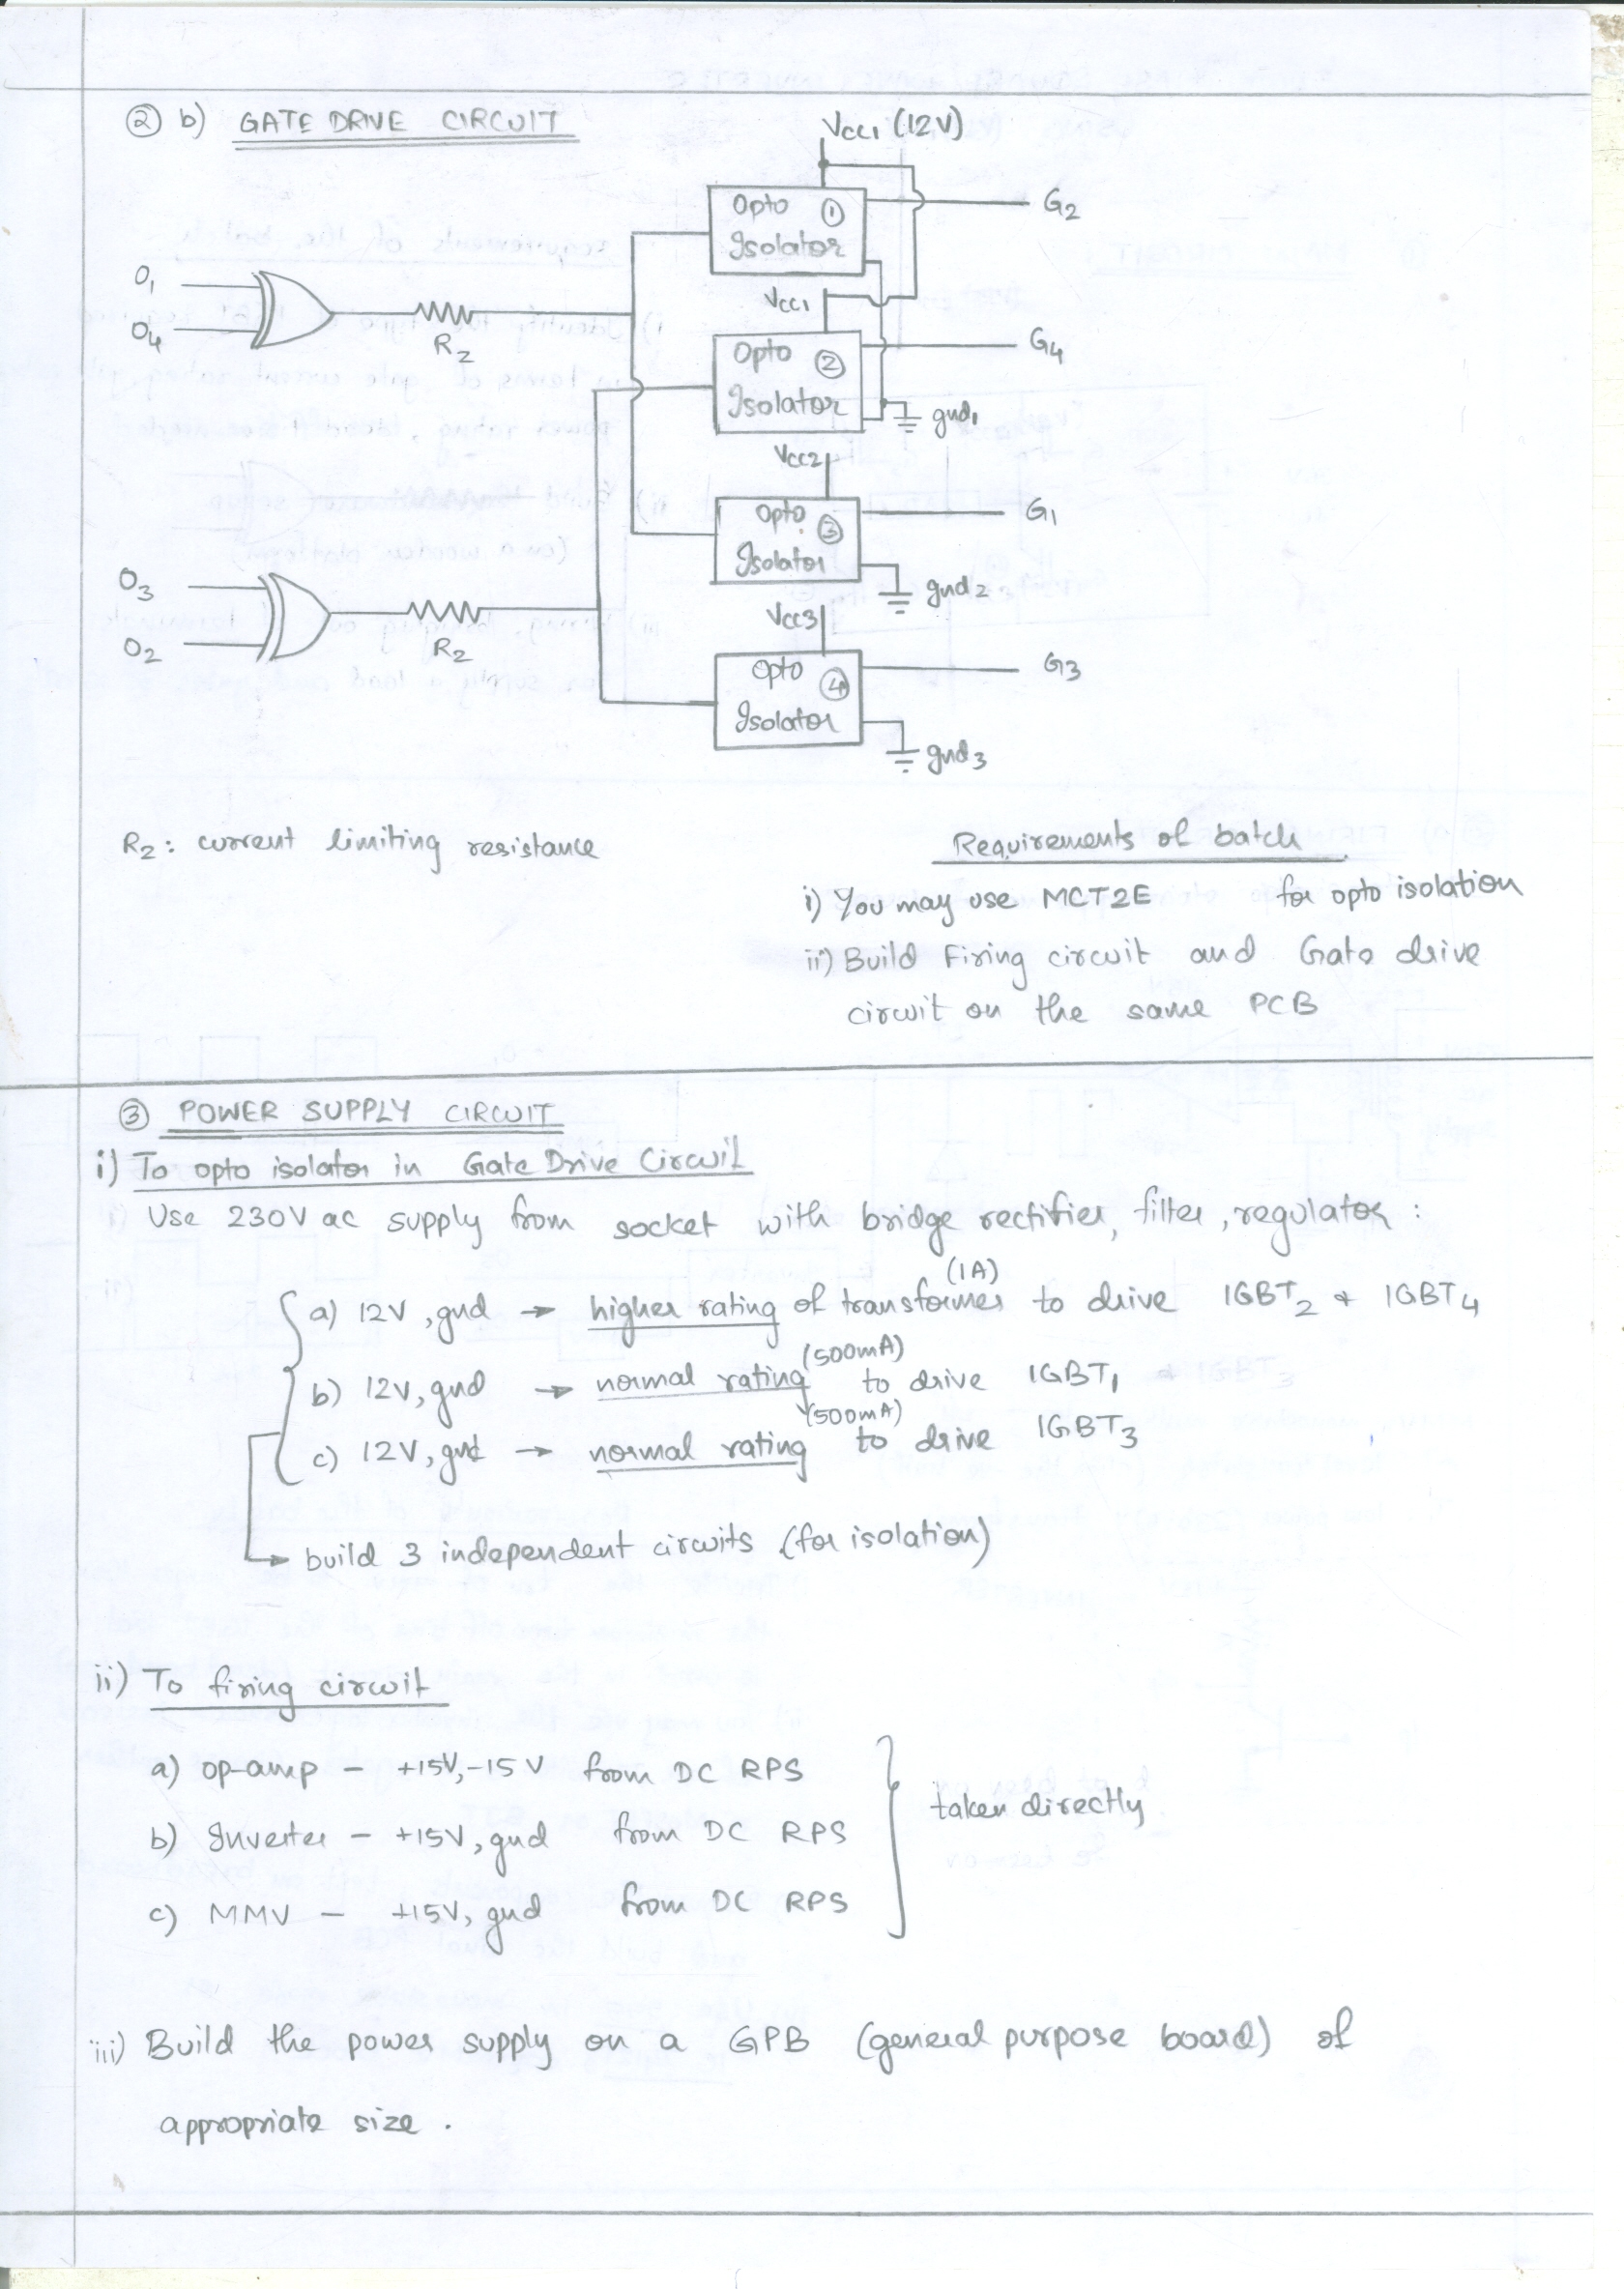 ② b) GATE DRIVE CIRCUIT
Vcc1 (12V)
Opto ①
Isolator
G2
O1
O4
R2
Vcc1
Opto ②
Isolator
G4
gnd1
Vcc2
Opto ③
Isolator
G1
gnd2
O3
O2
R2
Vcc3
Opto ④
Isolator
G3
gnd3
R2: current limiting resistance
Requirements of batch
i) You may use MCT2E for opto isolation
ii) Build Firing circuit and Gate drive
circuit on the same PCB
③ POWER SUPPLY CIRCUIT
i) To opto isolator in Gate Drive Circuit
Use 230V ac supply from socket with bridge rectifier, filter, regulator :
(1A)
a) 12V, gnd → higher rating of transformer to drive IGBT2 & IGBT4
(500mA)
b) 12V, gnd → normal rating to drive IGBT1
(500mA)
c) 12V, gnd → normal rating to drive IGBT3
build 3 independent circuits (for isolation)
ii) To firing circuit
a) op-amp - +15V, -15V from DC RPS
b) Inverter - +15V, gnd from DC RPS
taken directly
c) MMV - +15V, gnd from DC RPS
iii) Build the power supply on a GPB (general purpose board) of
appropriate size.